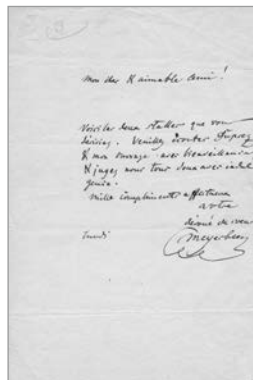 Mon cher & aimable ami!
Voici les deux stalles que vous
désiriez. Veuillez écouter Duprez
& mon ouvrage avec bienveillance
& jugez nous tous deux avec indul
gence.
Mille compliments affectueux
votre
dévoué de coeur
Meyerbeer
Lundi